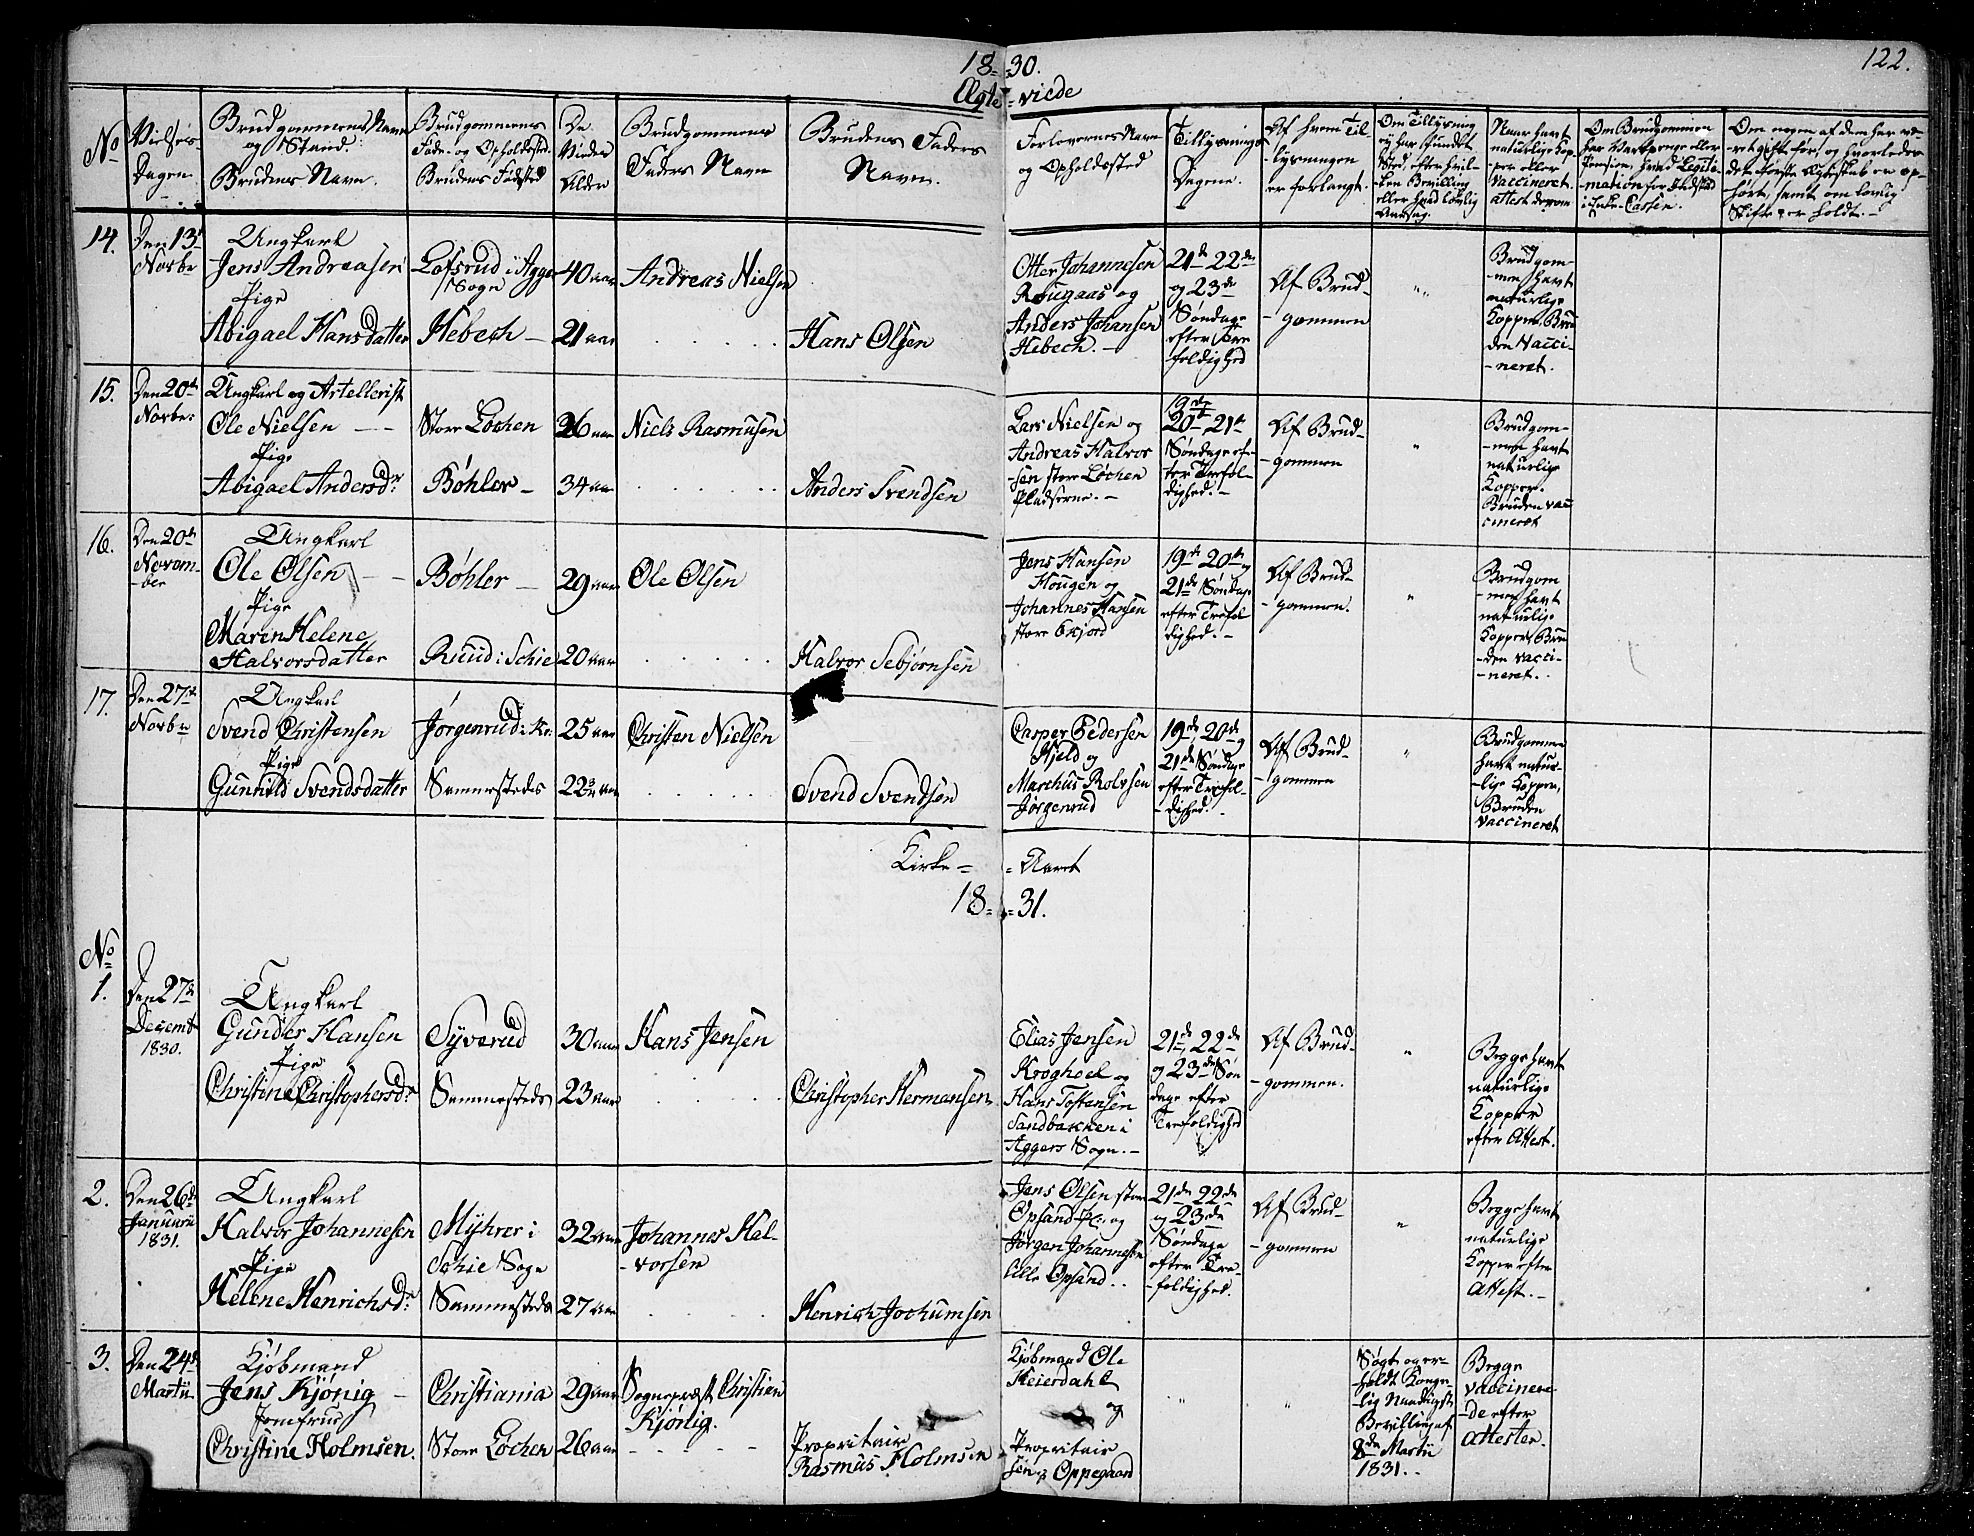 18=30.
122.
Ægte=viede
No
Vielses-
Dagen
Brudgommens Navn
og Stand.
Brudens Navn.
Brudgommens
Føde- og Opholdssted.
Brudens Fødsted
De
Viedes
Alder
Brudgommens
Faders Navn
Brudens Faders
Navn.
Forlovernes Navn
og Opholdssted
Tillysnings-
Dagene.
Af hvem Til-
lysningen
er forlangt.
Om Tillysning
ej har fundet
Sted, efter hvil-
ken Bevilling
eller hvad lovlig
Aarsag.
Naar havt
naturlige Kop-
per eller
vaccineret.
attest derom
Om Brudgommen
har Vartpenge eller
Pension, hvad Legiti-
mation for Indskud
i Enke-Cassen.
Om nogen af dem har væ-
ret gift før, og hvorledes
det første Ægteskab er op-
hørt, samt om lovlig
Skifte er holdt.
14.
Den 13de
Novbr
Ungkarl
Jens Andreasen
Pige
Abigael Hansdatter
Lofsrud i Agger
Sogn
Hebech
40 aar
21 aar
Andreas Nielsen
Hans Olsen
Otter Johannesen
Rougaas og
Anders Johansen
Hebech.
21de 22de
og 23de
Søndage
efter Tre
foldighed
Af Brud-
gommen
Brudgom-
men havt
naturlige
Kopper, Bru
den Vacci-
neret.
15.
Den 20de
Novber
Ungkarl og Artellerist
Ole Nielsen
Pige
Abigael Andersdr
Store Lochen
Bøhler
26 aar
34 aar
Niels Rasmusen
Anders Svendsen
Lars Nielsen og
Andreas Halvor
sen store Løchen
Pladserne.
19de
20de 21de
Søndage ef-
ter Trefol-
dighed.
Af Brud-
gommen
Brudgom-
men havt
naturlige
Kopper.
Bruden vac
cineret
16.
Den 20de
Novem-
ber
Ungkarl
Ole Olsen
Pige
Maren Helene
Halvorsdatter
Bøhler
Ruud i Schie
29 aar
20 aar
Ole Olsen
Halvor Sebjørnsen
Jens Hansen
Hougen og
Johannes Hansen
store Oxjord
19de 20de og
21de Søndage
efter Trefol
dighed.
Af Brud-
gommen.
Brudgom
men havt
naturlige
Kopper, Bru
den vacci-
neret.
17.
Den 27de
Novbr
Ungkarl
Svend Christensen
Pige
Gunnild Svendsdatter
Jørgenrud i Kr:
Sammestedes
25 aar
22¾ aar
Christen Nielsen
Svend Svendsen
Casper Pedersen
Hjeld og
Marchus Rolvsen
Jørgenrud
19de, 20de og
21de Søndage
efter Trefol-
dighed.
Af Brud-
gommen
Brudgommen
havt natur-
lige Kopper,
Bruden
vaccineret
Kirke=Aaret
18=31.
No
1.
Den 27de
Decembr
1830.
Ungkarl
Gunder Hansen
Pige
Christine Christophersdr
Syverud
Sammestedes
30 aar
23 aar
Hans Jensen
Christopher Hermansen
Elias Jensen
Kroghoel og
Hans Tostensen
Sandbakken i
Aggers Sogn.
21de, 22de
og 23de Søn
dage efter
Trefoldighed
Af Brud-
gommen.
Begge havt
naturlige
Kopper
efter Attest.
2.
Den 26de
Januarii
1831.
Ungkarl
Halvor Johannesen
Pige
Helene Henrichsdr
Myhrer i
Schie Sogn
Sammestedes
32 aar
27 aar
Johannes Hal-
vorsen
Henrich Jochumsen
Jens Olsen store
Opsand Pl: og
Jørgen Johannesen
lille Opsand.
21de 22de
og 23de
Søndage
efter Tre-
foldighed.
Af Brud-
gommen
Begge havt
naturlige
Kopper efter
Attest.
3.
Den 24de
Martii
Kjøbmand
Jens Kjønig
Jomfrue
Christine Holmsen.
Christiania
Store Lochen
29 aar
26 aar
Sognepræst Christian
Kjønig.
Propritair
Rasmus Holmsen
Kjøbmand Ole
Heierdahl
og
Propritair
Oppegaard
Søgt og er-
holdt Konge-
lig Naadigst
Bevilling af
8de Martii
1831.
Begge
vaccinere-
de efter
Attester.